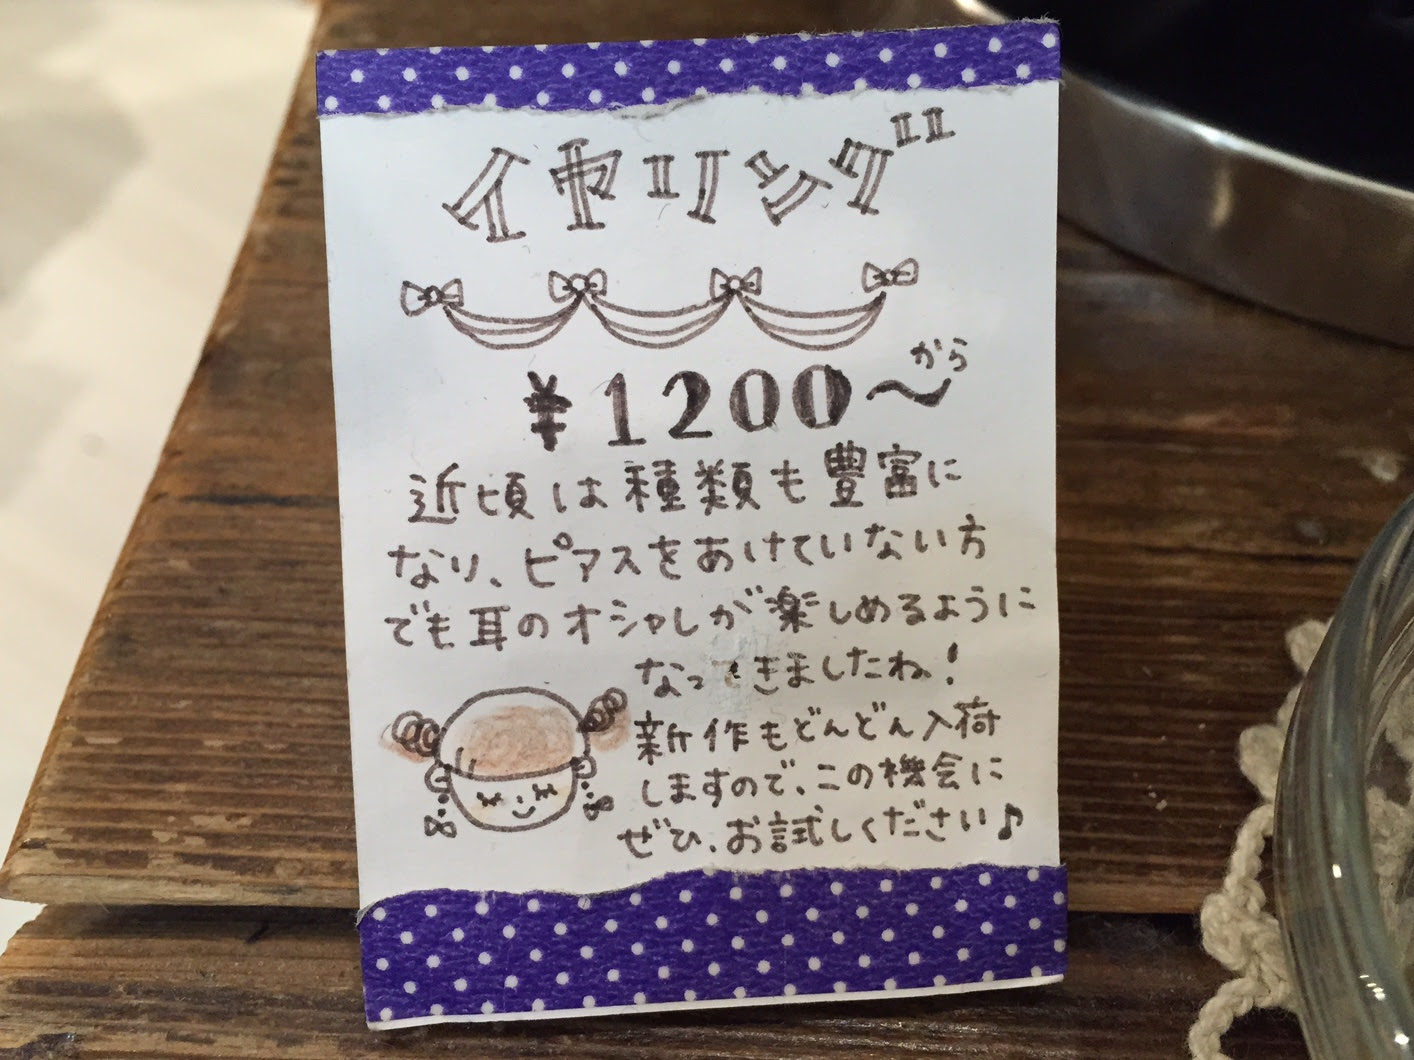 イヤリング
¥1200〜から
近頃は種類も豊富に
なり、ピアスをあけていない方
でも耳のオシャレが楽しめるように
なってきましたね!
新作もどんどん入荷
しますので、この機会に
ぜひ、お試しください♪